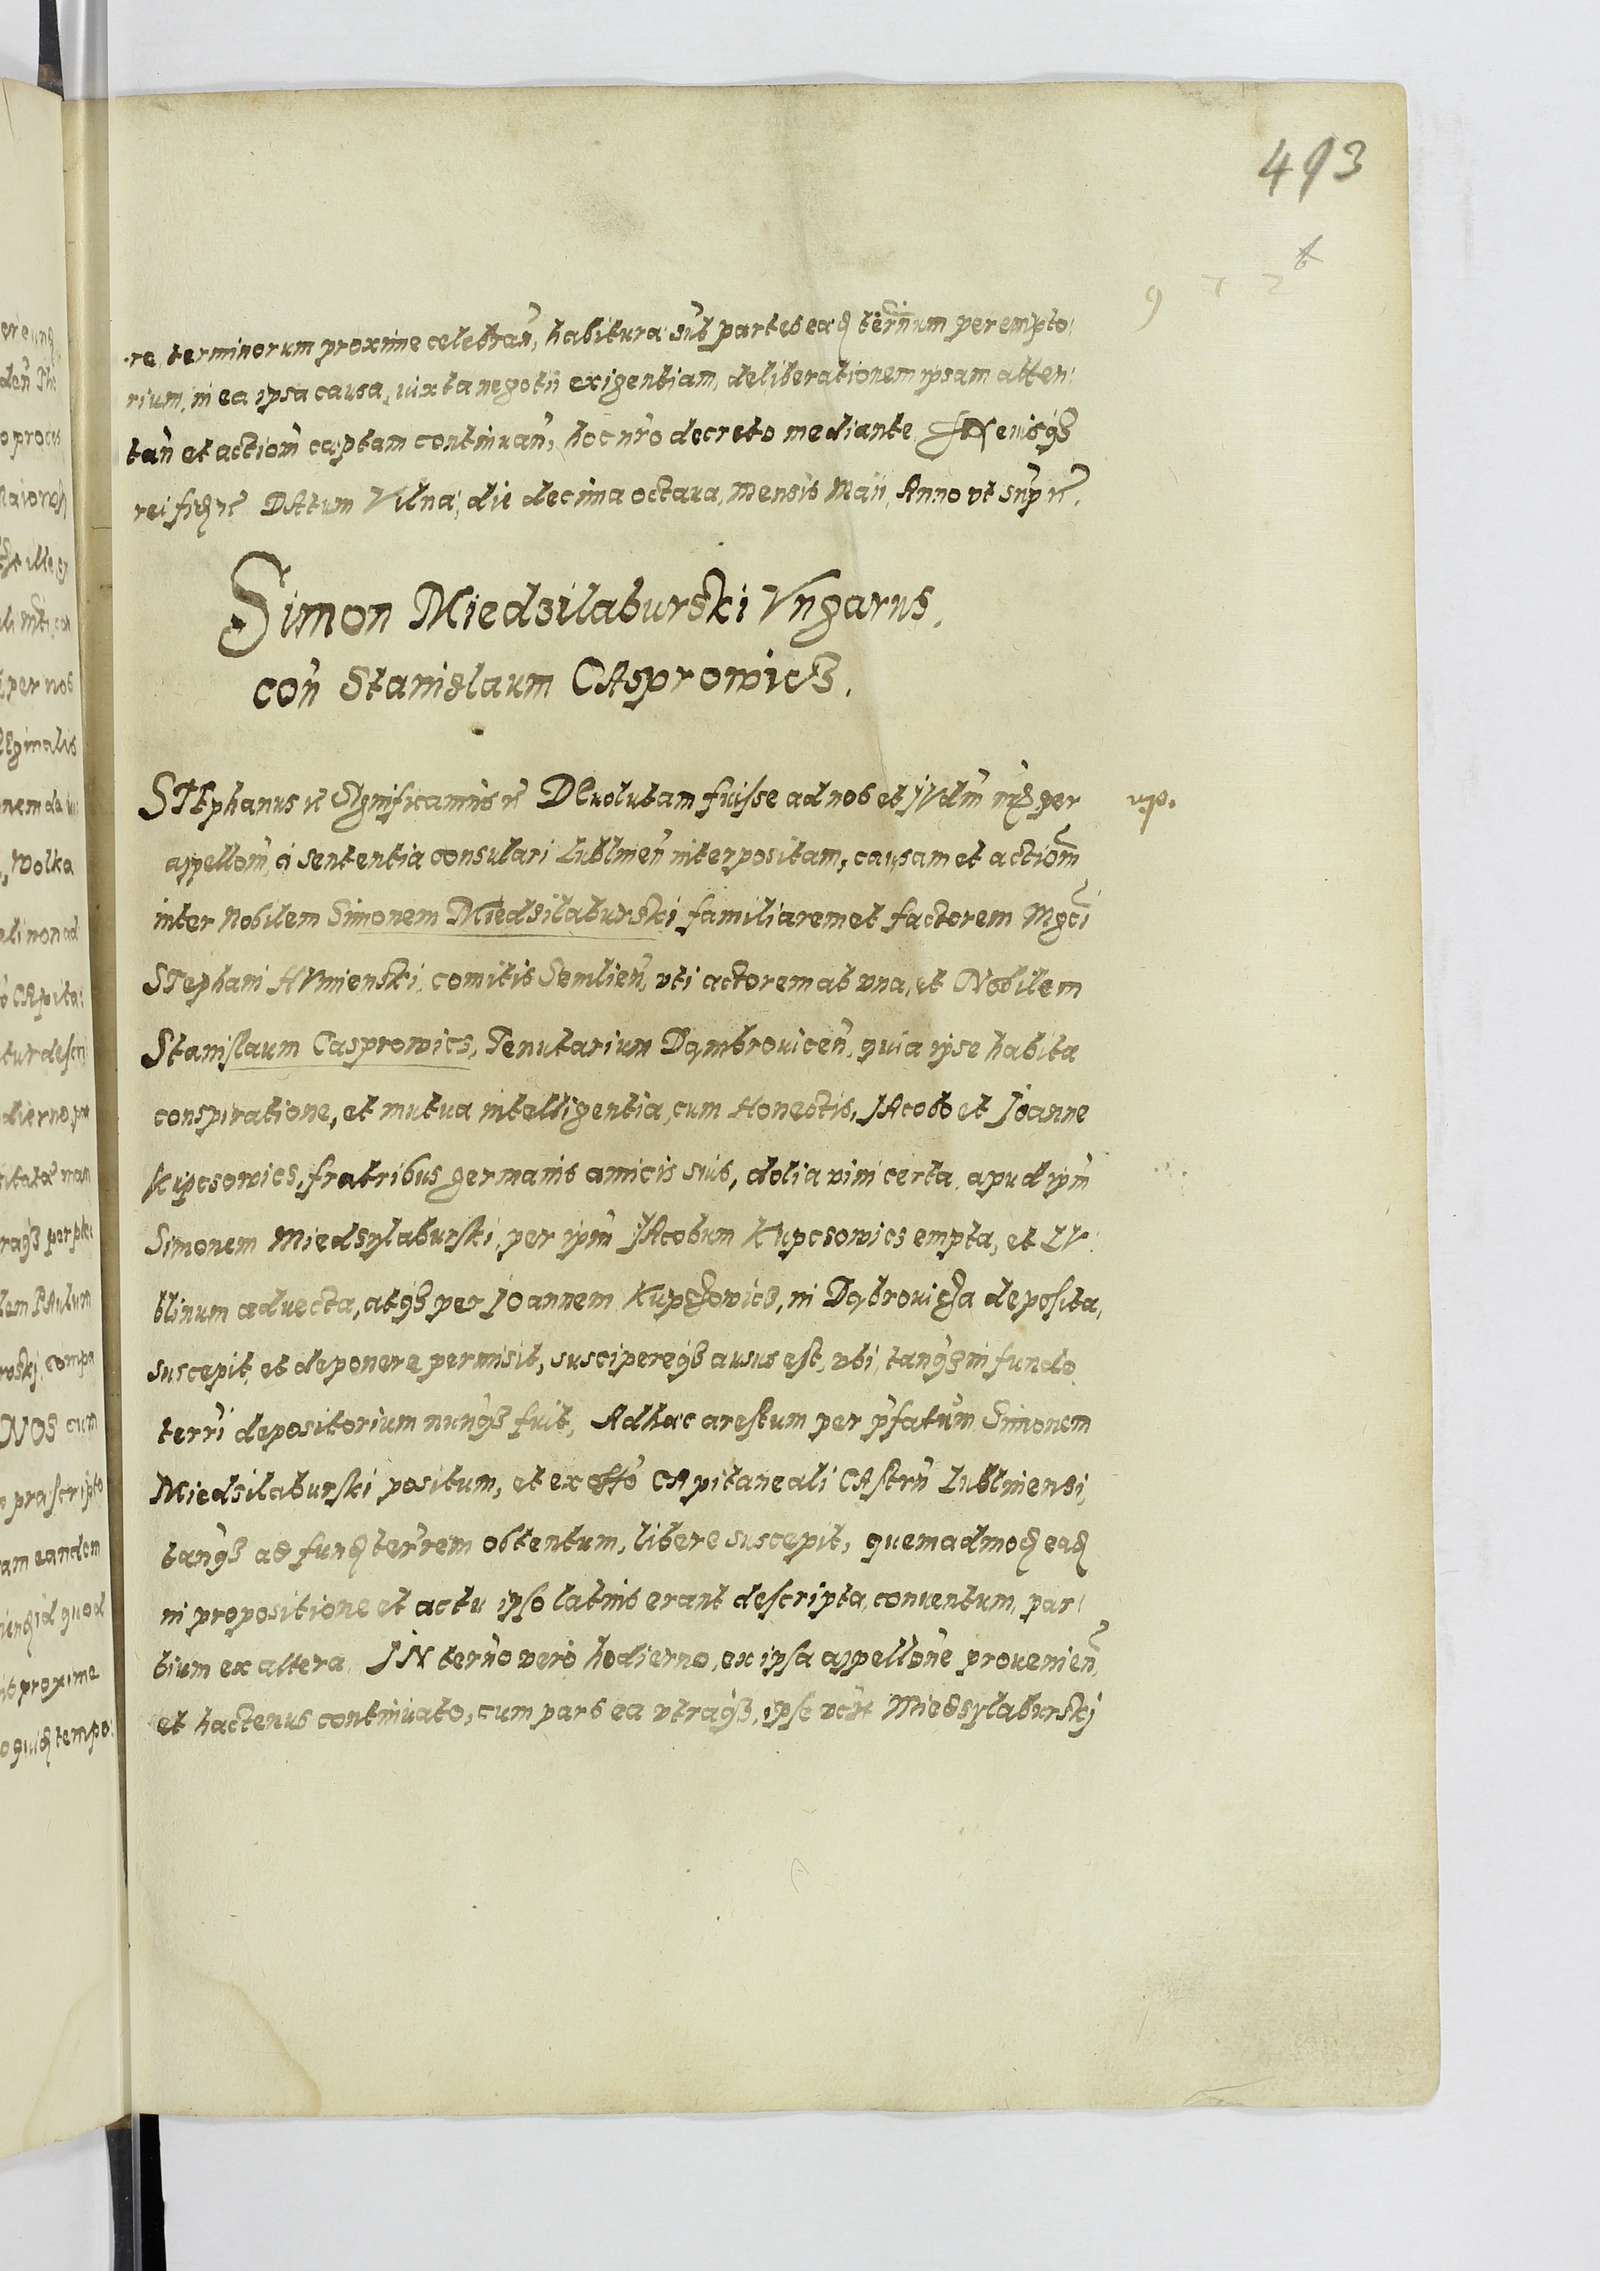 493
re, terminorum proxime celebrañ, habitura sũt partes eaq̃ ter̃num perempto:
rium, in ea ipsa causa, iuxta negotii exigentiam, deliberationem ipsam atten:
tañ et actiom̃ captam continuañ, hoc nr̃o decreto mediante eiusq3
rei DAtum Vilnæ, die decima octaua, mensis Maii, Anno vt sup̃
Simon Miedzilaburski Vngarus.
con̄ Stanislaum CAsprowicz.
STEphanus Significamus DEuolutam fuisse ad nos et IVdm̃ per
appellom̃, à sententia consulari Lublineñ interpositam, causam et actiom̃
inter Nobilem Simonem Miedzilaburski familiarem et factorem Mgci
STephani HVnienski, comitis Semlieñ, vti actorem ab vna, et Nobilem
Stanislaum Casprowicz, Tenutarium Dąmbrouiceñ, quia ipse habita
conspiratione, et mutua intelligentia, cum Honestis, IAcobo et Joanne
Kupczowicz, fratribus germanis amicis suis, dolia vini certa, apud ipm̃
Simonem Miedzylaburski, per ipm̃ IAcobum Kupczowicz empta, et LV:
blinum aduecta, atq3 per Joannem Kupczowicz, in Dąbrouicza deposita,
suscepit, et deponere permisit, suscipereq3 ausus est, vbi, tanq3 in fundo
terr̃i depositorium nunq3 fuit, Adhæc arestum per p̃fatum Simonem
Miedzilaburski positum, et ex off̃o CApitaneali CAstrñ Lublinensi,
tanq3 ad funq̃ ter̃rem obtentum, libere suscepit, quemadmoq̃ eaq̃
in propositione et actu ipso latius erant descripta, conuentum, par:
tium ex altera. IN ter̃no vero hodierno, ex ipsa appellõne prouenieñ,
et hactenus continuato, cum pars ea vtraq3, ipse Miedzylaburski